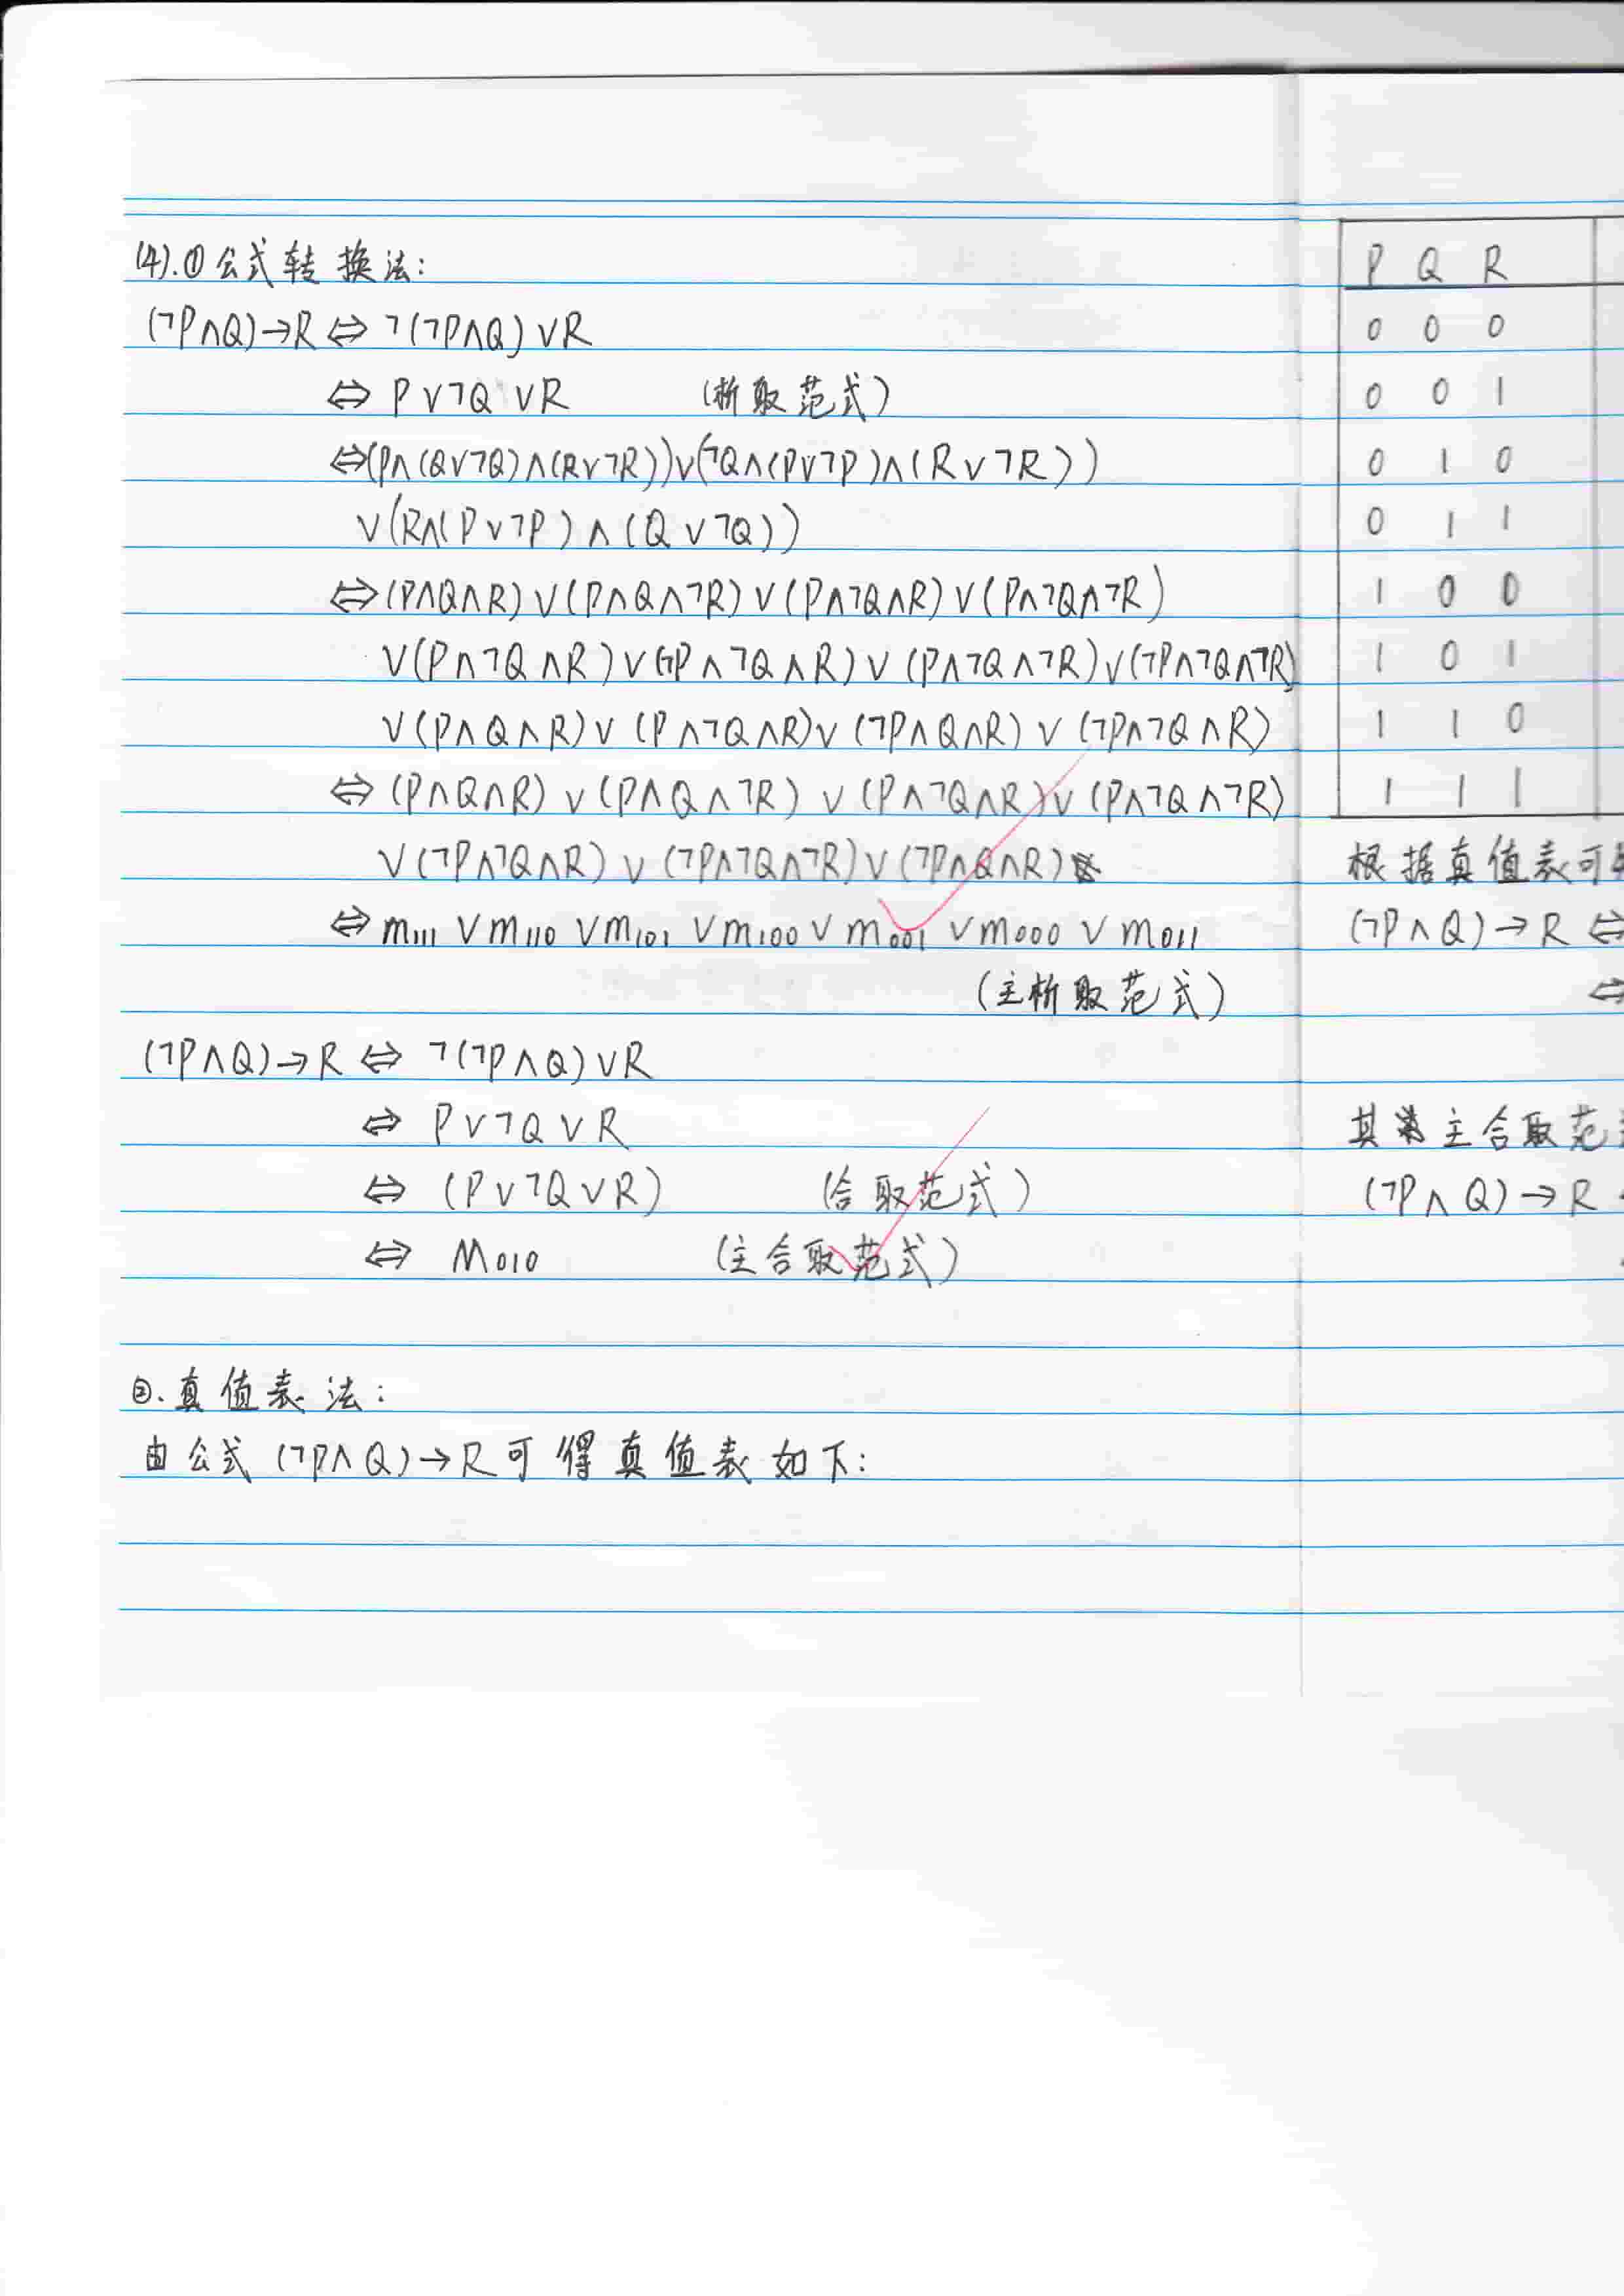 (4).①公式转换法:
(¬P∧Q)→R⇔¬(¬P∧Q)∨R
⇔ P∨¬Q∨R (析取范式)
⇔(P∧(Q∨¬Q)∧(R∨¬R))∨(¬Q∧(P∨¬P)∧(R∨¬R))
∨(R∧(P∨¬P)∧(Q∨¬Q))
⇔(P∧Q∧R)∨(P∧Q∧¬R)∨(P∧¬Q∧R)∨(P∧¬Q∧¬R)
∨(P∧¬Q∧R)∨(¬P∧¬Q∧R)∨(P∧¬Q∧¬R)∨(¬P∧¬Q∧¬R)
∨(P∧Q∧R)∨(P∧¬Q∧R)∨(¬P∧Q∧R)∨(¬P∧¬Q∧R)
⇔(P∧Q∧R)∨(P∧Q∧¬R)∨(P∧¬Q∧R)∨(P∧¬Q∧¬R)
∨(¬P∧¬Q∧R)∨(¬P∧¬Q∧¬R)∨(¬P∧Q∧R)
⇔m₁₁₁∨m₁₁₀∨m₁₀₁∨m₁₀₀∨m₀₀₁∨m₀₀₀∨m₀₁₁
(主析取范式)
(¬P∧Q)→R⇔¬(¬P∧Q)∨R
⇔ P∨¬Q∨R
⇔ (P∨¬Q∨R) (合取范式)
⇔ M₀₁₀ (主合取范式)
②.真值表法:
由公式(¬P∧Q)→R可得真值表如下:
P Q R
0 0 0
0 0 1
0 1 0
0 1 1
1 0 0
1 0 1
1 1 0
1 1 1
根据真值表可
(¬P∧Q)→R⇔
⇔
其 主合取范
(¬P∧Q)→R